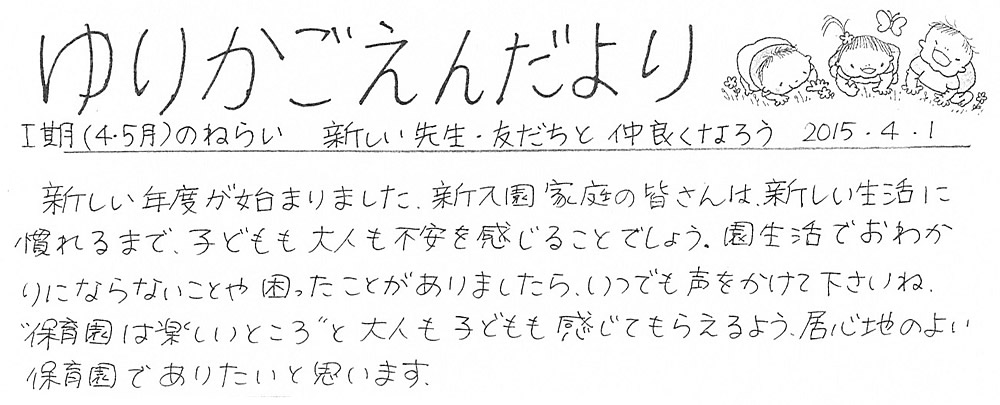 ゆりかごえんだより
I期(4・5月)のねらい 新しい先生・友だちと仲良くなろう 2015・4・1
新しい年度が始まりました。新入園家庭の皆さんは、新しい生活に
慣れるまで、子どもも大人も不安を感じることでしょう。園生活でおわか
りにならないことや困ったことがありましたら、いつでも声をかけて下さいね。
"保育園は楽しいところ"と大人も子どもも感じてもらえるよう、居心地のよい
保育園でありたいと思います。